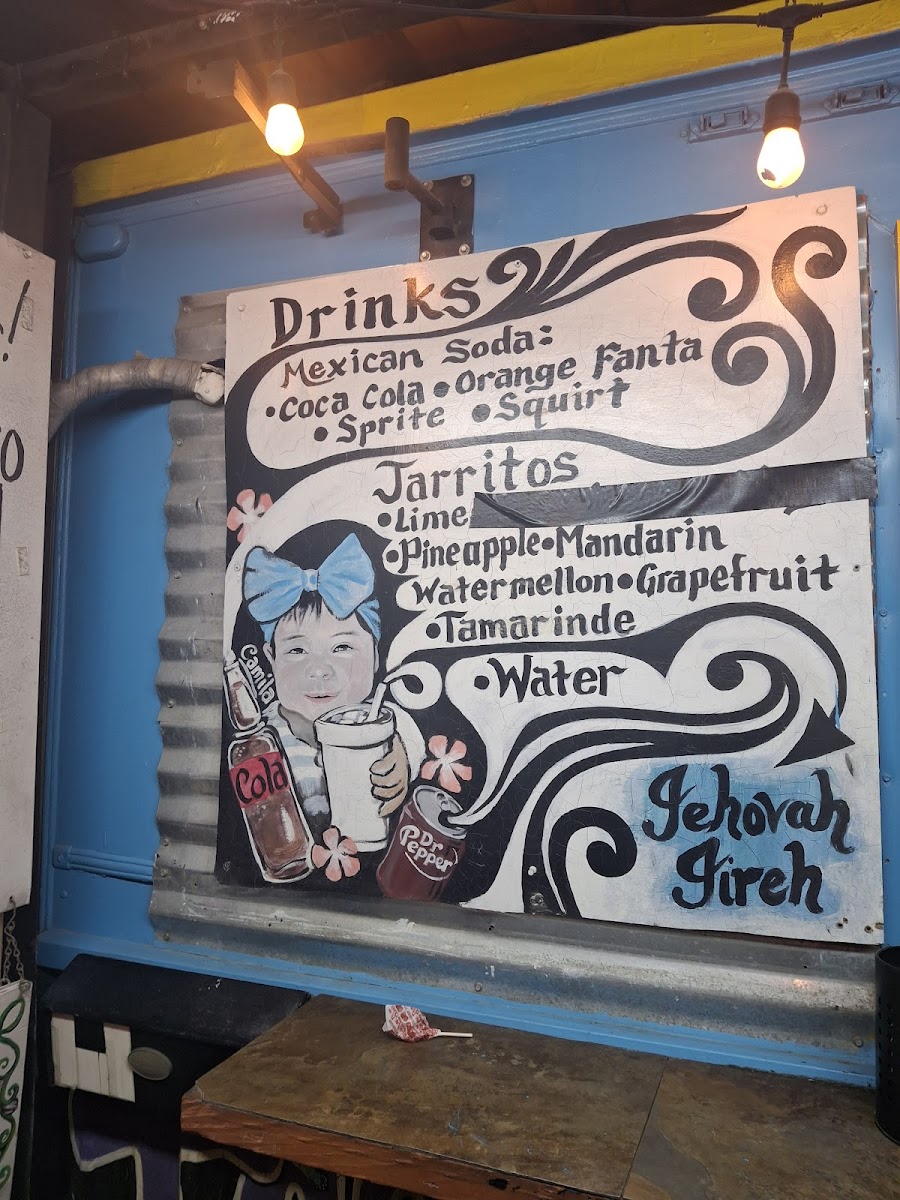 Drinks
Mexican Soda:
•Coca Cola •Orange Fanta
•Sprite •Squirt
Jarritos
•Lime
•Pineapple•Mandarin
Watermellon•Grapefruit
•Tamarinde
•Water
Camila
Cola
Dr
Pepper
Jehovah
Jireh